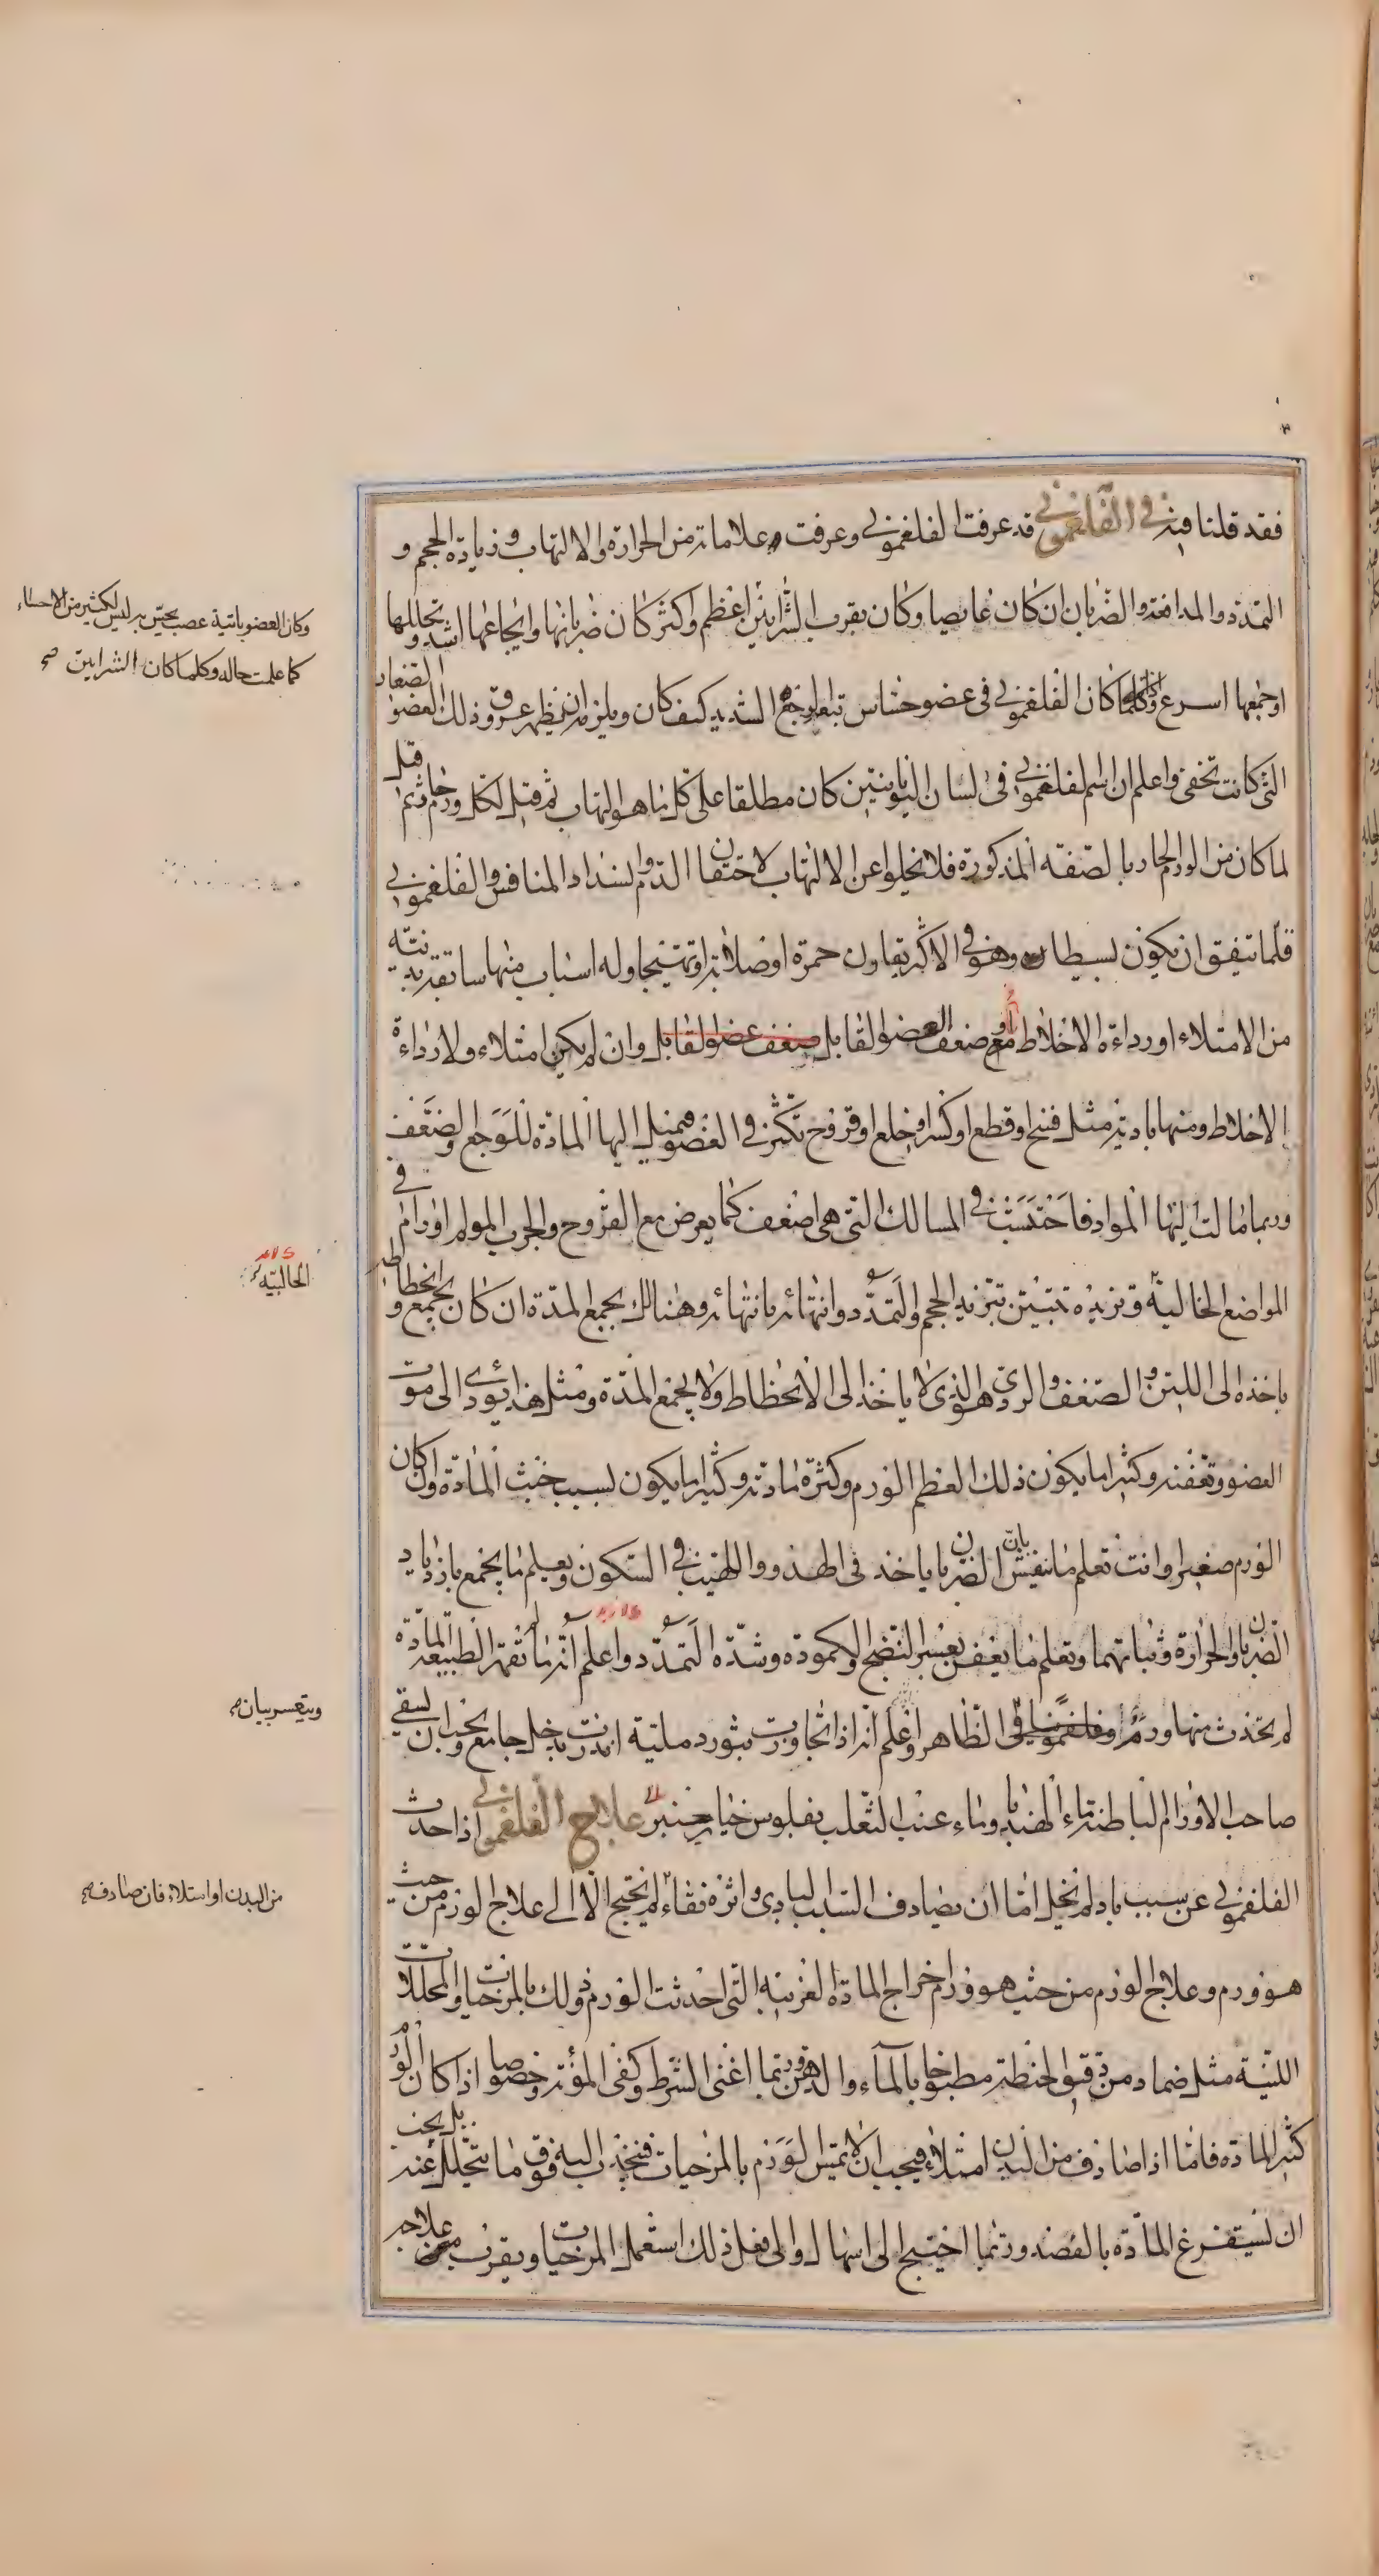 فقد قلنا فيه في الفلغموني قد عرفت الفلغموني وعرفت علاماته من الحرارة والالتهاب وزيادة الحجم و
التمدد والمدافعة والضربان ان كان غايصا وكان بقرب الشرايين اعظم واكثر كان ضربانها وايجاعها اشد وتحللها
او جمعها اسرع وكلما كان الفلغموني في عضو حساس تبعه الوجع الشديد كيف كان ويلزم ان يظهر عروق ذلك العضو الصغار
التي كانت تخفى واعلم ان اسم فلغموني في لسان اليونانيين كان مطلقا على كل ما هو التهاب ثم قيل لكل ورم حار ثم قيل
لما كان من الورم الحار بالصفة المذكورة فلا يخلوا عن الالتهاب لاحتقان الدم وانسداد المنافس والفلغموني
قلما يتفق ان يكون بسيطا وهو في الاكثر يقارن حمرة او صلابة او تهيجا وله اسباب منها سابقة بدنية
من الامتلاء او رداءة الاخلاط او مع ضعف العضو القابل ضعف عضو القابل وان لم يكن امتلاء ولا رداءة
الاخلاط ومنها بادية مثل فسخ او قطع او كسر او خلع او قروح تكثر في العضو فيميل اليها المادة للوجع والضعف
وربما مالت اليها المواد فاحتبست في المسالك التي هي اضعف كما يعرض مع القروح والجرب المولم اورام في
المواضع الخالية وتزيده تبين بتزيد الحجم والتمدد وانتهائه بانتهائه وهنالك يجمع المدة ان كان يجمع وانحطاطه
باخذه الى اللين والضعف والردي هو الذي لا ياخذ الى الانحطاط ولا يجمع المدة ومثل هذا يؤدي الى موت
العضو وتعفنه وكثيرا ما يكون ذلك لعظم الورم وكثرة مادته وكثيرا ما يكون لسبب خبث المادة وان كان
الورم صغيرا وانت تعلم ما ينفش بان الضربان ياخذ في الهدو واللهيب في السكون ويعلم ما يجمع بازدياد
الضربان والحرارة وثباتهما وتعلم ما يعفن بعسر النضج والكمودة وشدة التمدد واعلم انه ما لم تقهر الطبيعة المادة
لم يحدث منها ورم او فلغموني في الظاهر واعلم انه اذا تجاورت بثور دملية انذرت بدخل جامع ويجب ان يسقى
صاحب الاورام الباطنة ماء الهندبا وماء عنب الثعلب بفلوس خيار شنبر علاج الفلغموني اذا حدث
الفلغموني عن سبب باد لم يخل اما ان يصادف السبب البادي واثره نقاء لم يحتج الا الى علاج الورم من حيث
هو ورم وعلاج الورم من حيث هو ورم اخراج المادة الغريبة التي احدثت الورم وذلك بالمرخيات والمحللات
اللينة مثل ضماد من دقيق الحنطة مطبوخا بالماء والدهن وربما اغنى الشرط وكفى المؤنة وخصوصا اذا كان الورم
كثير المادة فاما اذا صادف من البدن امتلاء فيجب ان لا يمس الورم بالمرخيات فينجذب اليه فوق ما يتحلل عنه بل يجب
ان يستفرغ المادة بالفصد وربما احتيج الى اسهال والى فعل ذلك استعمل المرخيات ويقرب علاجه
وكان العضو ياتيه عصب يحس به ليس لكثير من الاحشاء
كما علمت حاله وكلما كان الشرايين صح
الخالية
ويتعسر بيان
من البدن او امتلاء فان صادف صح